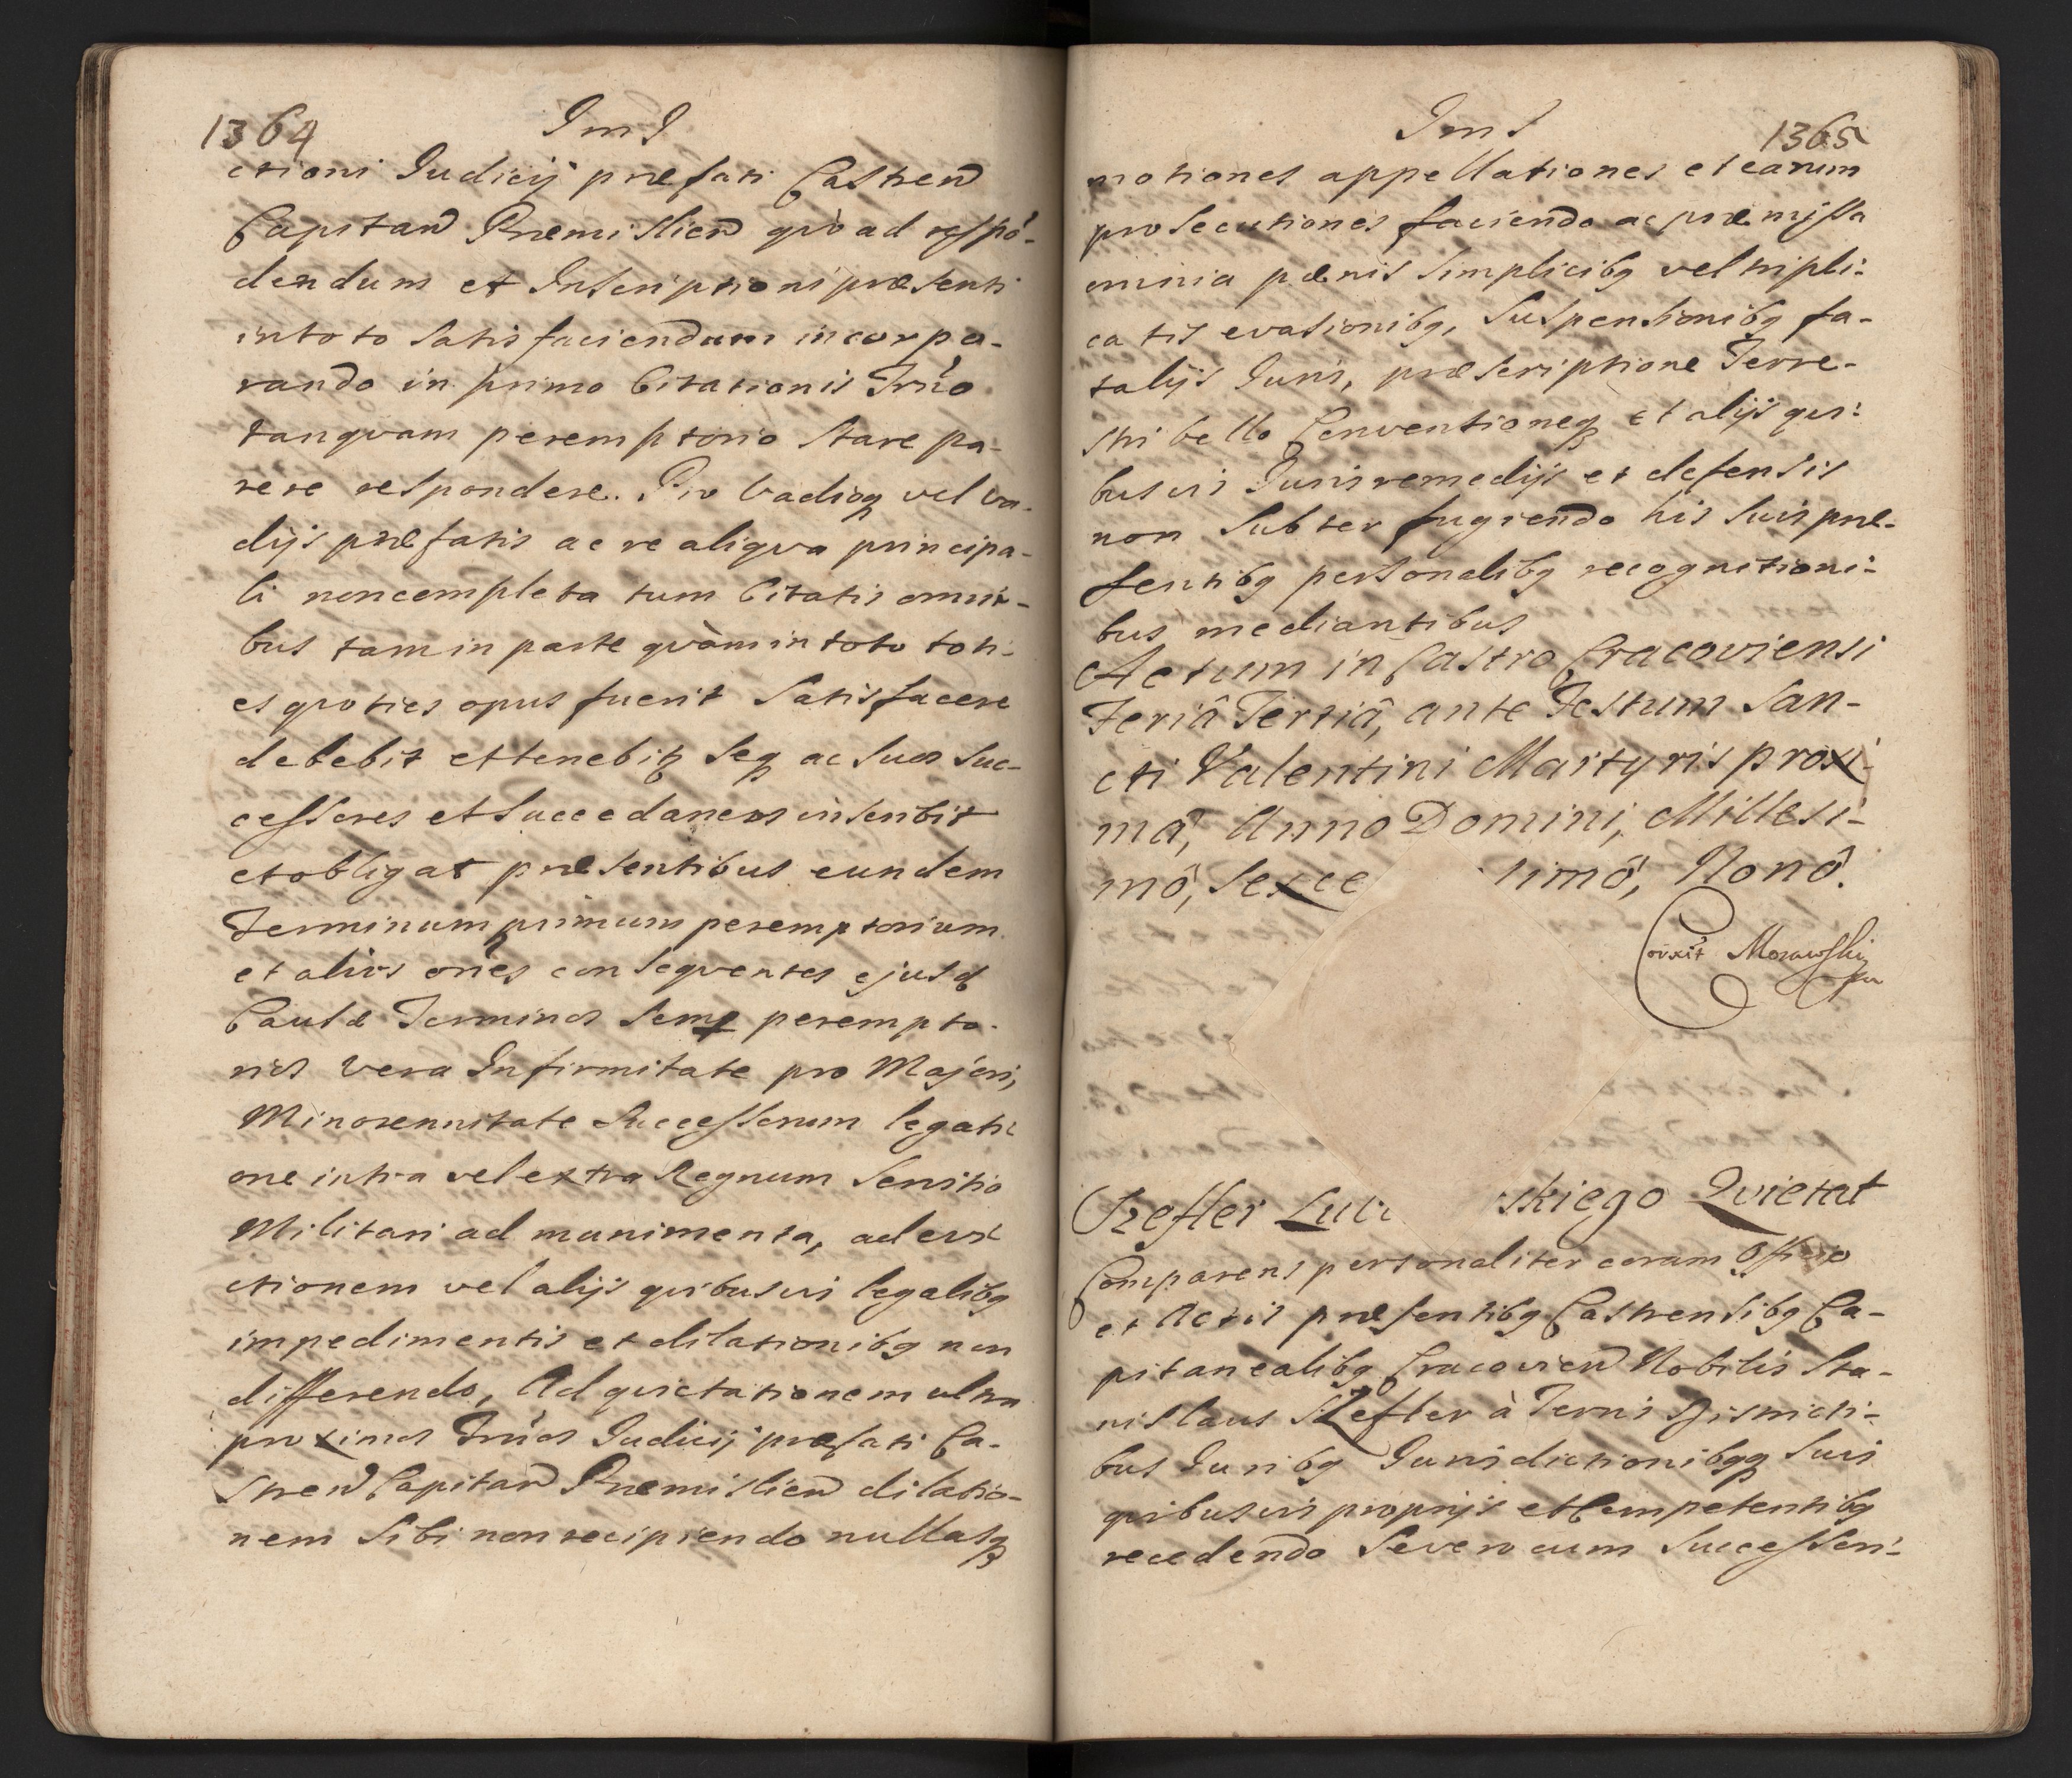 1364
ImJ
ctioni Judicij præfati Castren
Capitan Præmislien quò ad respō-
dendum et Inscriptioni præsenti
in toto satisfaciendum incorpo-
rando in primo Citationis Trño
tanquam peremptorio stare pa-
rere respondere. Pro vadioq vel va-
dijs præfatis ac re aliqva principa-
li non completa tum Citatis omni-
bus tam in parte qvàm in toto toti-
es qvoties opus fuerit satisfacere
debebit et tenebit seq ac suos suc-
cessores et succedaneos inscribit
et obligat præsentibus eundem
Terminum primum peremptorium
et alios oñes conseqventes ejusd
Causæ Terminos semp perempto-
rios vera Infirmitate pro Majori,
Minorennitate Successorum legati-
one intra vel extra Regnum servitio
Militari ad munimenta, ad evi-
ctionem vel alijs qvibusvis legalibq
impedimentis et dilationibq non
differendo, Ad qvietationem ultra
proximos Trños Judicij præfati Ca-
stren Capitan Præmislien dilatio-
nem sibi non recipiendo nullasq
ImJ
1365
motiones appellationes et earum
prosecutiones faciendo ac præmissa
omnia pænis simplicibq vel tripli-
catis evasionibq, suspensionibq fa-
talijs Juris, præscriptione Terre-
stri bello Conventioneq et alijs qvi-
busvis Juris remedijs et defensis
non subterfugiendo his suis præ-
sentibq personalibq recognitioni-
bus mediantibus
Actum in Castro Cracoviensi
Feriâ Tertiâ, ante Festum San-
cti Valentini Martyris proxi-
mâ, Anno Domini, Millesi-
mô, Sexce simô, Nonô.
Corrxit Morawski
mp
Szefler Lub skiego Qvietat
Comparens personaliter coram Officio
et Actis præsentibq Castrensibq Ca-
pitanealibq Cracovien Nobilis Sta-
nislaus Szefler à Terris Districti-
bus Juribq Jurisdictionibqq suis
qvibusvis proprijs et Competentibq
recedendo Se vero cum Successori-